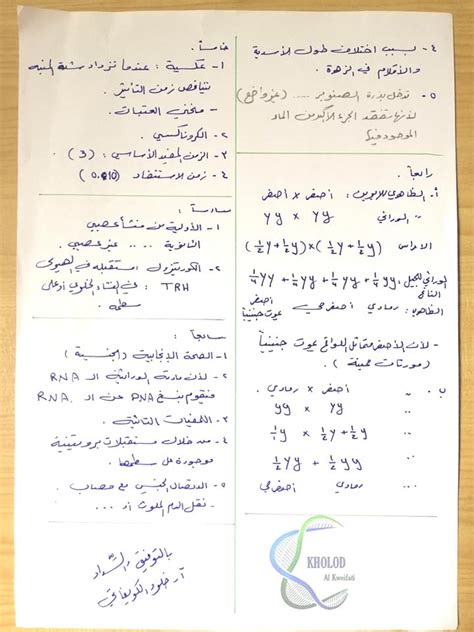 ٤- بسبب اختلاف طول الأسدية
والأقلام في الزهرة.
٥- تدخل بذرة الصنوبر ..... (غير واضح)
لأنها تفقد الجزء الأكبر من الماء
الموجود فيها
رابعاً:
أ- الظاهري للأبوين: أصفر × أصفر
الوراثي " Yy × Yy
الأعراس (½Y+½y)×(½Y+½y)
الوراثي للجيل: ¼YY + ¼Yy + ¼Yy + ¼yy
الناتج
الظاهري: رمادي أصفر حي أصفر يموت جنينياً
- لأن الأصفر متماثل اللواقح يموت جنينياً
(مورثات مميتة)
ب- أصفر × رمادي.
" yy × Yy
" ⅟₁y × ½Y+½y
½Yy + ½yy
رمادي أصفر حي
KHOLOD
Al Kweifati
خامساً:
١- عكسية: عندما تزداد شدة المنبه
يتناقص زمن التأثير
- منحني العتبات
٢- الكروناكسي.
٣- الزمن المفيد الأساسي: (3)
٤- زمن الاستنفاد (0.10)
سادساً:
١- الأولية من منشأ عصبي
الثانوية .. .. غير عصبي.
٢- الكورتيزول استقبله في الهيولى
TRH: في الغشاء الخلوي أو على
سطحه.
سابعاً:
١- الصحة الإنجابية (الجنسية)
٢- لأن مادته الوراثية الـ RNA
فتقوم بنسخ DNA عن الـ RNA.
٣- اللمفيات التائية.
٤- من خلال مستقبلات بروتينية
موجودة على سطحها.
٥- الاتصال الجنسي مع مصاب.
- نقل الدم الملوث أو ...
بالتوفيق والسداد
أ. خلود الكويفاتي